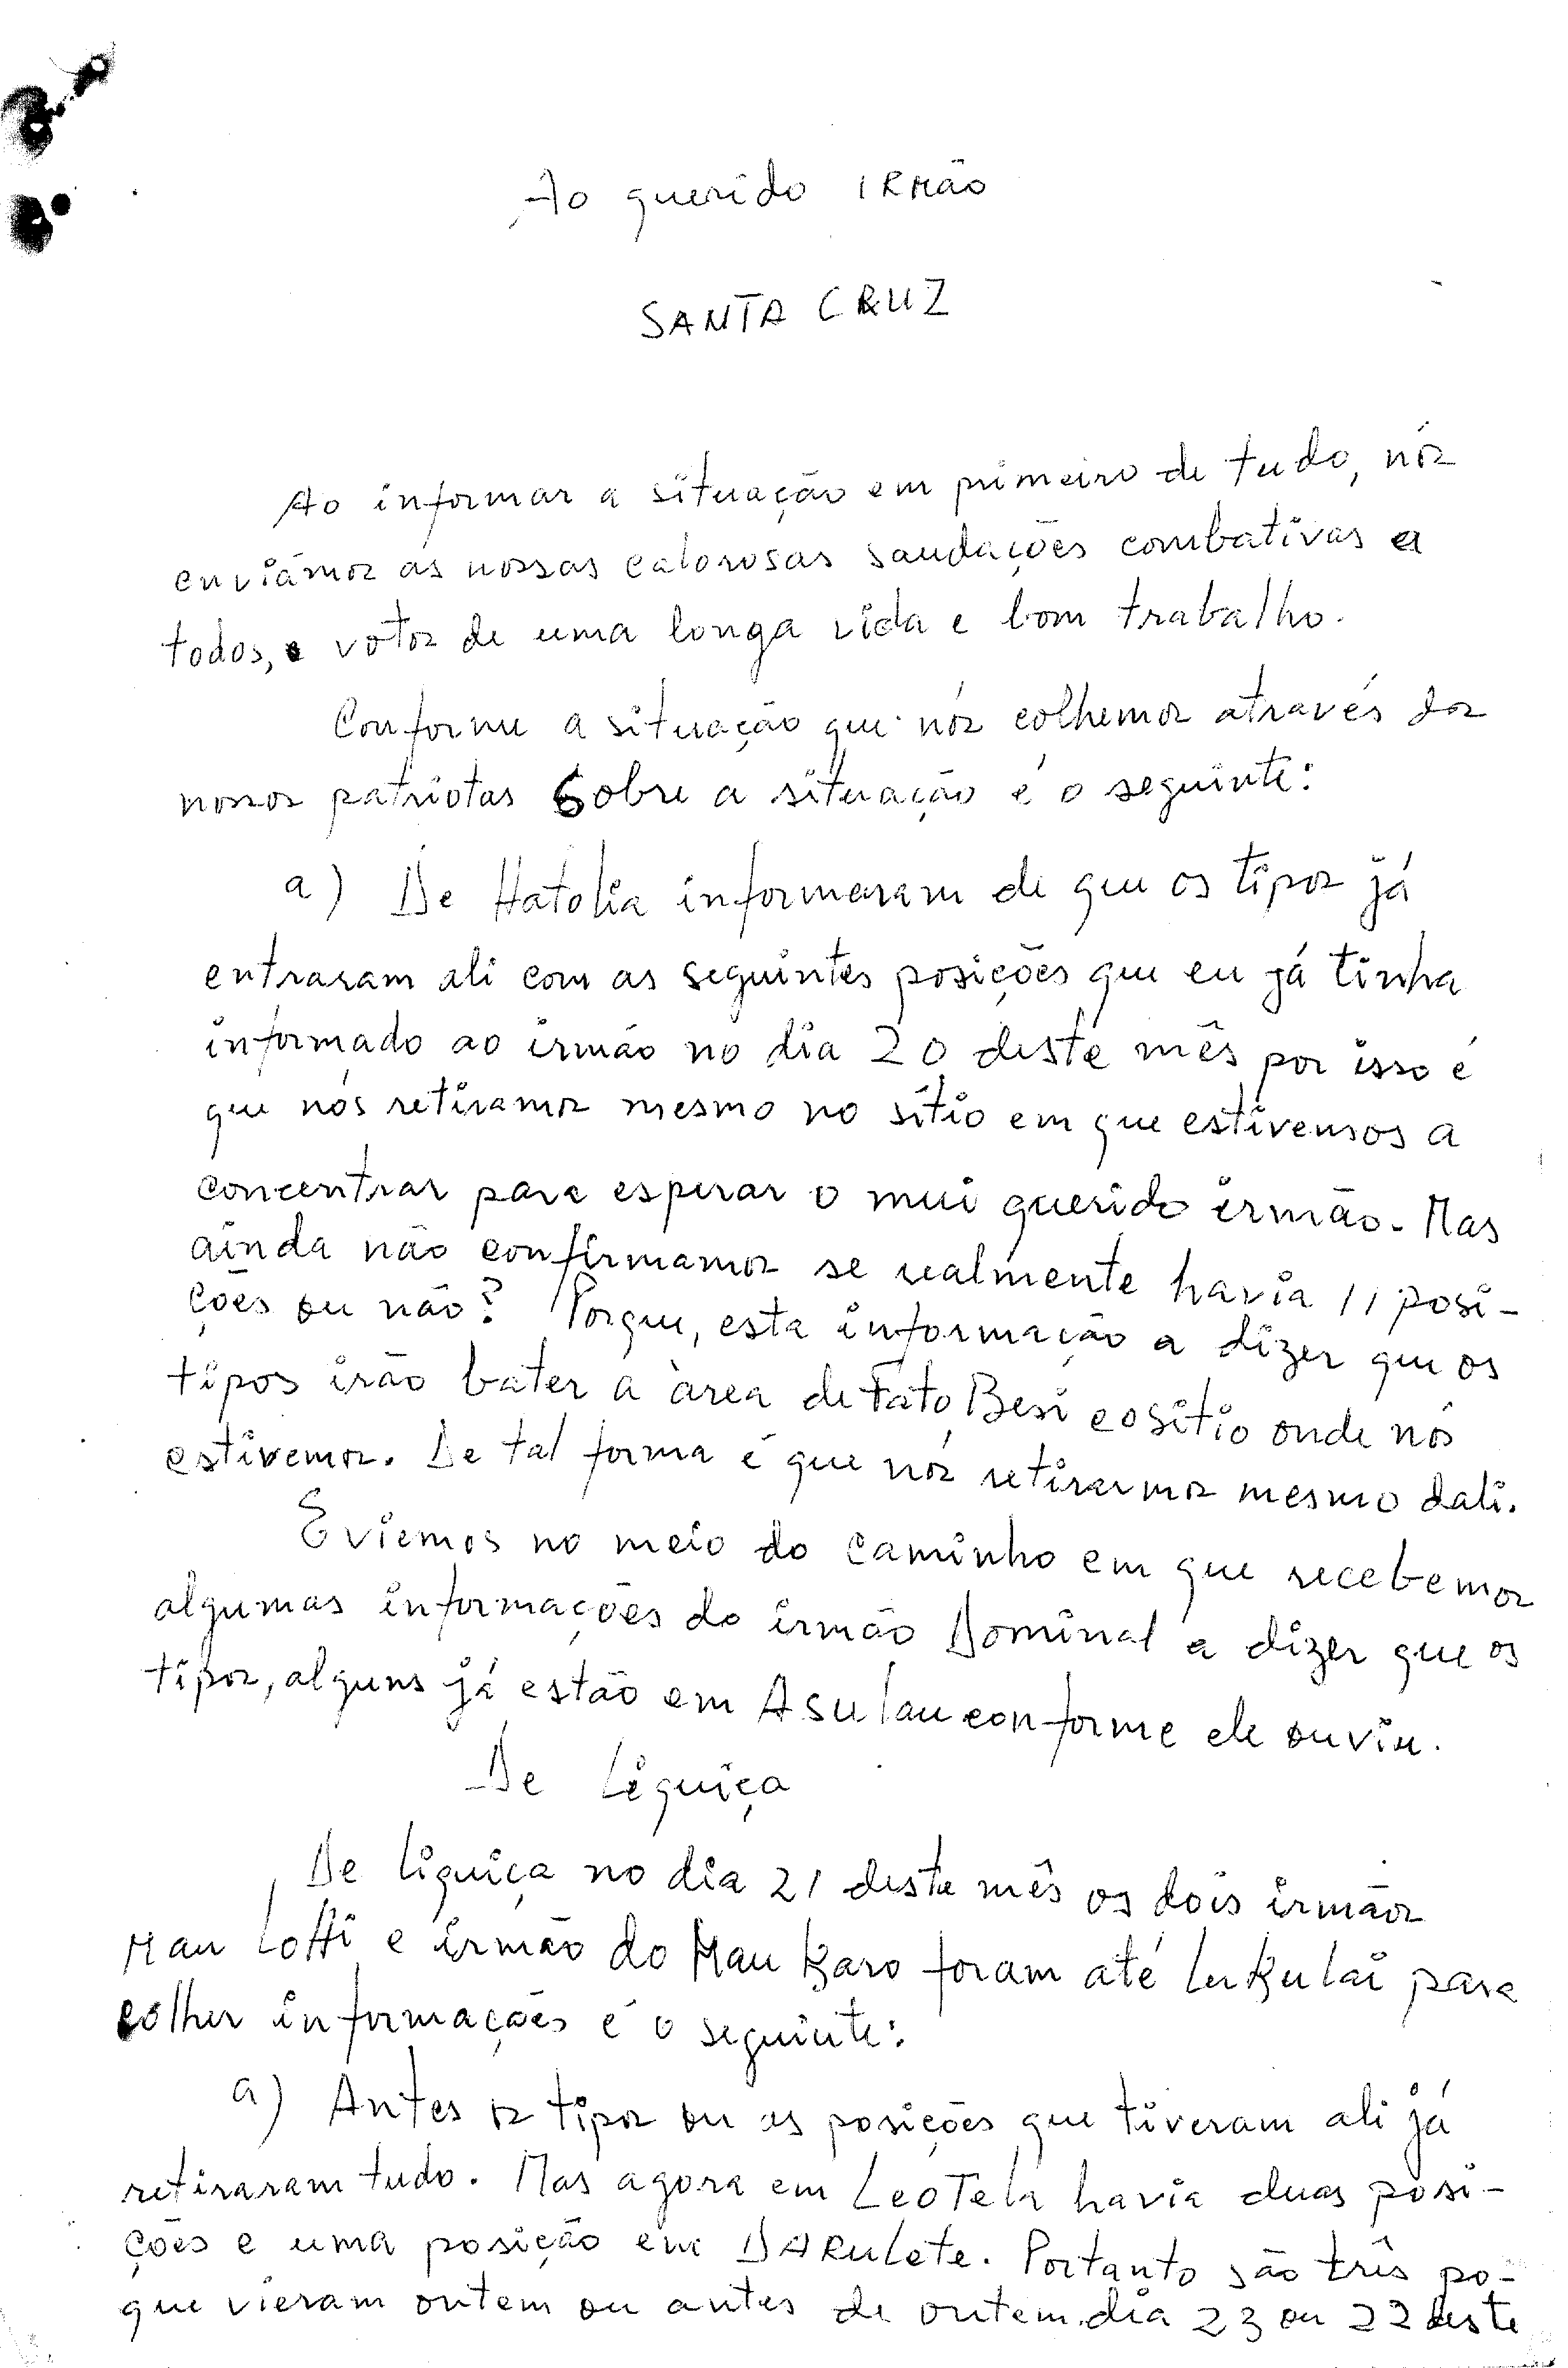 Ao querido IRMão
SANTA CRUZ
Ao informar a situação em primeiro de tudo, nós
enviámos as nossas calorosas saudações combativas a
todos, e votos de uma longa vida e bom trabalho.
Conforme a situação que nós colhemos através dos
nossos patriotas Sobre a situação é o seguinte:
a) De Hatolia informaram de que os tipos já
entraram ali com as seguintes posições que eu já tinha
informado ao irmão no dia 20 deste mês por isso é
que nós retiramos mesmo no sítio em que estivemos a
concentrar para esperar o mui querido irmão. Mas
ainda não confirmamos se realmente havia 11 posi-
ções ou não? Porque, esta informação a dizer que os
tipos irão bater a àrea de Fato Besi e o sítio onde nós
estivemos. De tal forma é que nós retiramos mesmo dali.
E viemos no meio do caminho em que recebemos
algumas informações do irmão Dominal a dizer que os
tipos, alguns já estão em Asulau conforme ele ouviu.
De Liquiça
De liquiça no dia 21 deste mês os dois irmãos
Mau Lotti e irmão do Mau Karo foram até Lukulai para
colher informações é o seguinte:
a) Antes os tipos ou as posições que tiveram ali já
retiraram tudo. Mas agora em LeoTela havia duas posi-
ções e uma posição em DARuLete. Portanto são três po-
que vieram ontem ou antes de ontem dia 23 ou 22 deste